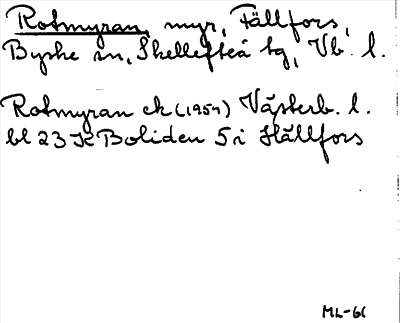 Rotmyran, myr, Fällfors,
Byske sn, Skellefteå tg, Vb. l.
Rotmyran ek (1954) Västerb. l.
bl 23 K Boliden 5 i Hällfors
ML-66